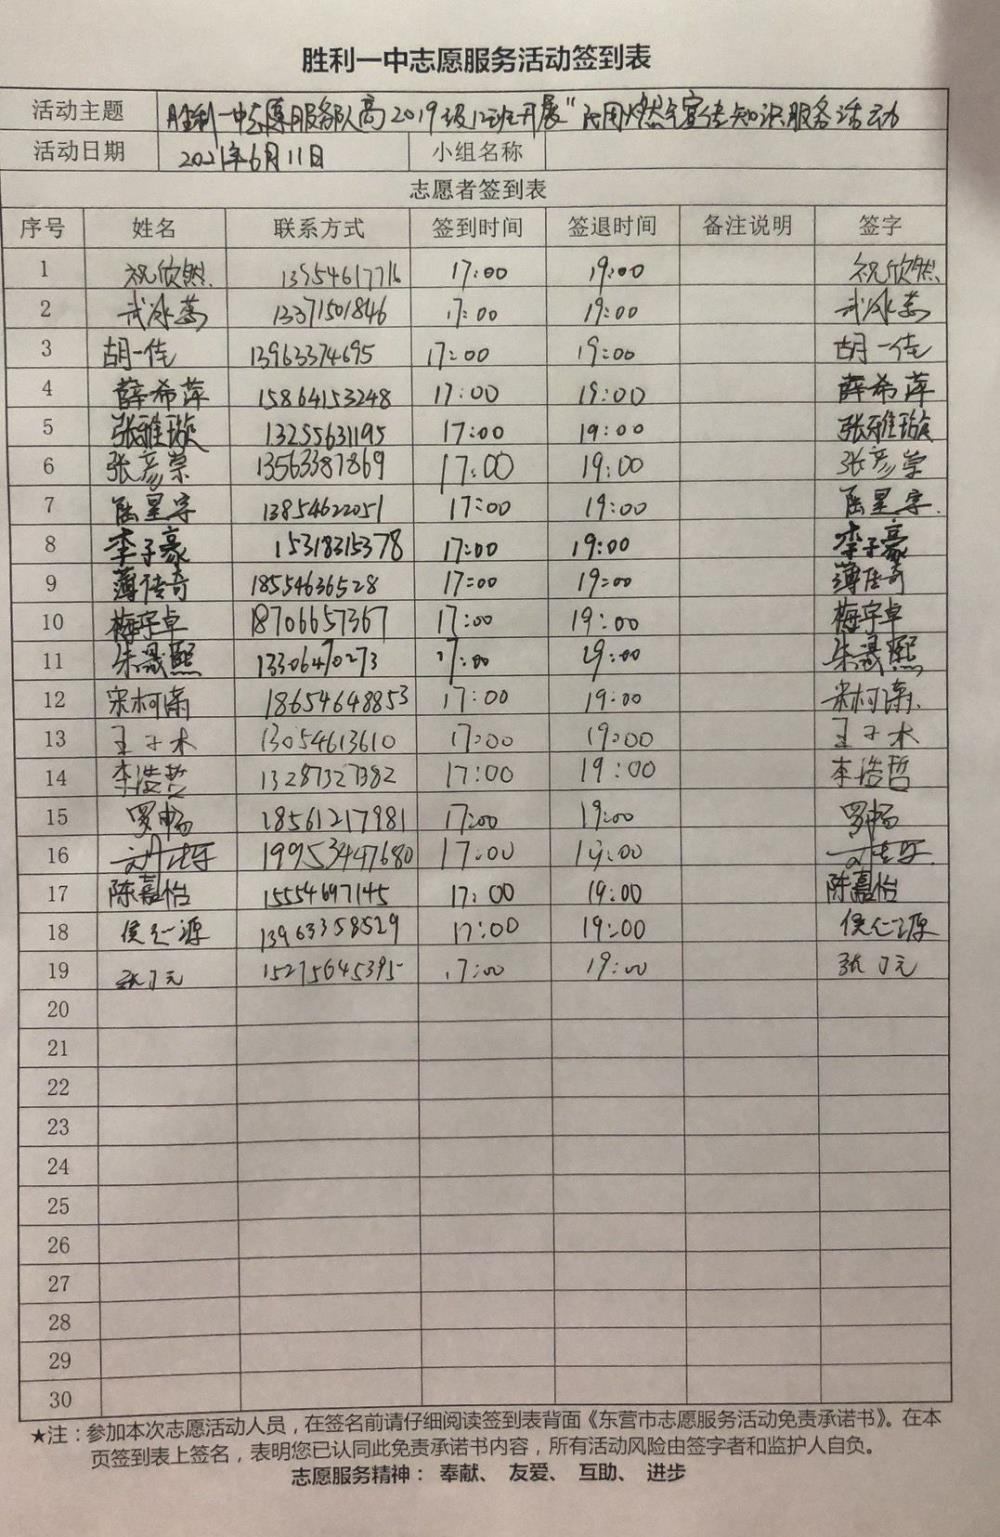 胜利一中志愿服务活动签到表
活动主题 胜利一中志愿服务队高2019级12班开展"民用燃气宣传知识服务活动
活动日期 2021年6月11日 小组名称
志愿者签到表
序号 姓名 联系方式 签到时间 签退时间 备注说明 签字
1 祝欣然 13954617716 17:00 19:00 祝欣然
2 武冰蕊 13371501846 17:00 19:00 武冰蕊
3 胡一佳 13963374695 17:00 19:00 胡一佳
4 薛希萍 15864153248 17:00 19:00 薛希萍
5 张雅璇 13255631195 17:00 19:00 张雅璇
6 张彦荣 13563387869 17:00 19:00 张彦荣
7 星宇 13854622051 17:00 19:00 星宇
8 李子豪 15318315378 17:00 19:00 李子豪
9 薄传奇 18554636528 17:00 19:00 薄传奇
10 梅宇卓 18706657367 17:00 19:00 梅宇卓
11 朱晟熙 13306470273 17:00 19:00 朱晟熙
12 宋柯南 18654648853 17:00 19:00 宋柯南
13 王子木 13054613610 17:00 19:00 王子木
14 李浩哲 13287327382 17:00 19:00 李浩哲
15 罗畅 18561217981 17:00 19:00 罗畅
16 刘 19953447680 17:00 19:00 刘
17 陈嘉怡 15554697145 17:00 19:00 陈嘉怡
18 侯仁源 13963358529 17:00 19:00 侯仁源
19 张了元 15275645395 17:00 19:00 张了元
20
21
22
23
24
25
26
27
28
29
30
★注：参加本次志愿活动人员，在签名前请仔细阅读签到表背面《东营市志愿服务活动免责承诺书》。在本
页签到表上签名，表明您已认同此免责承诺书内容，所有活动风险由签字者和监护人自负。
志愿服务精神： 奉献、 友爱、 互助、 进步